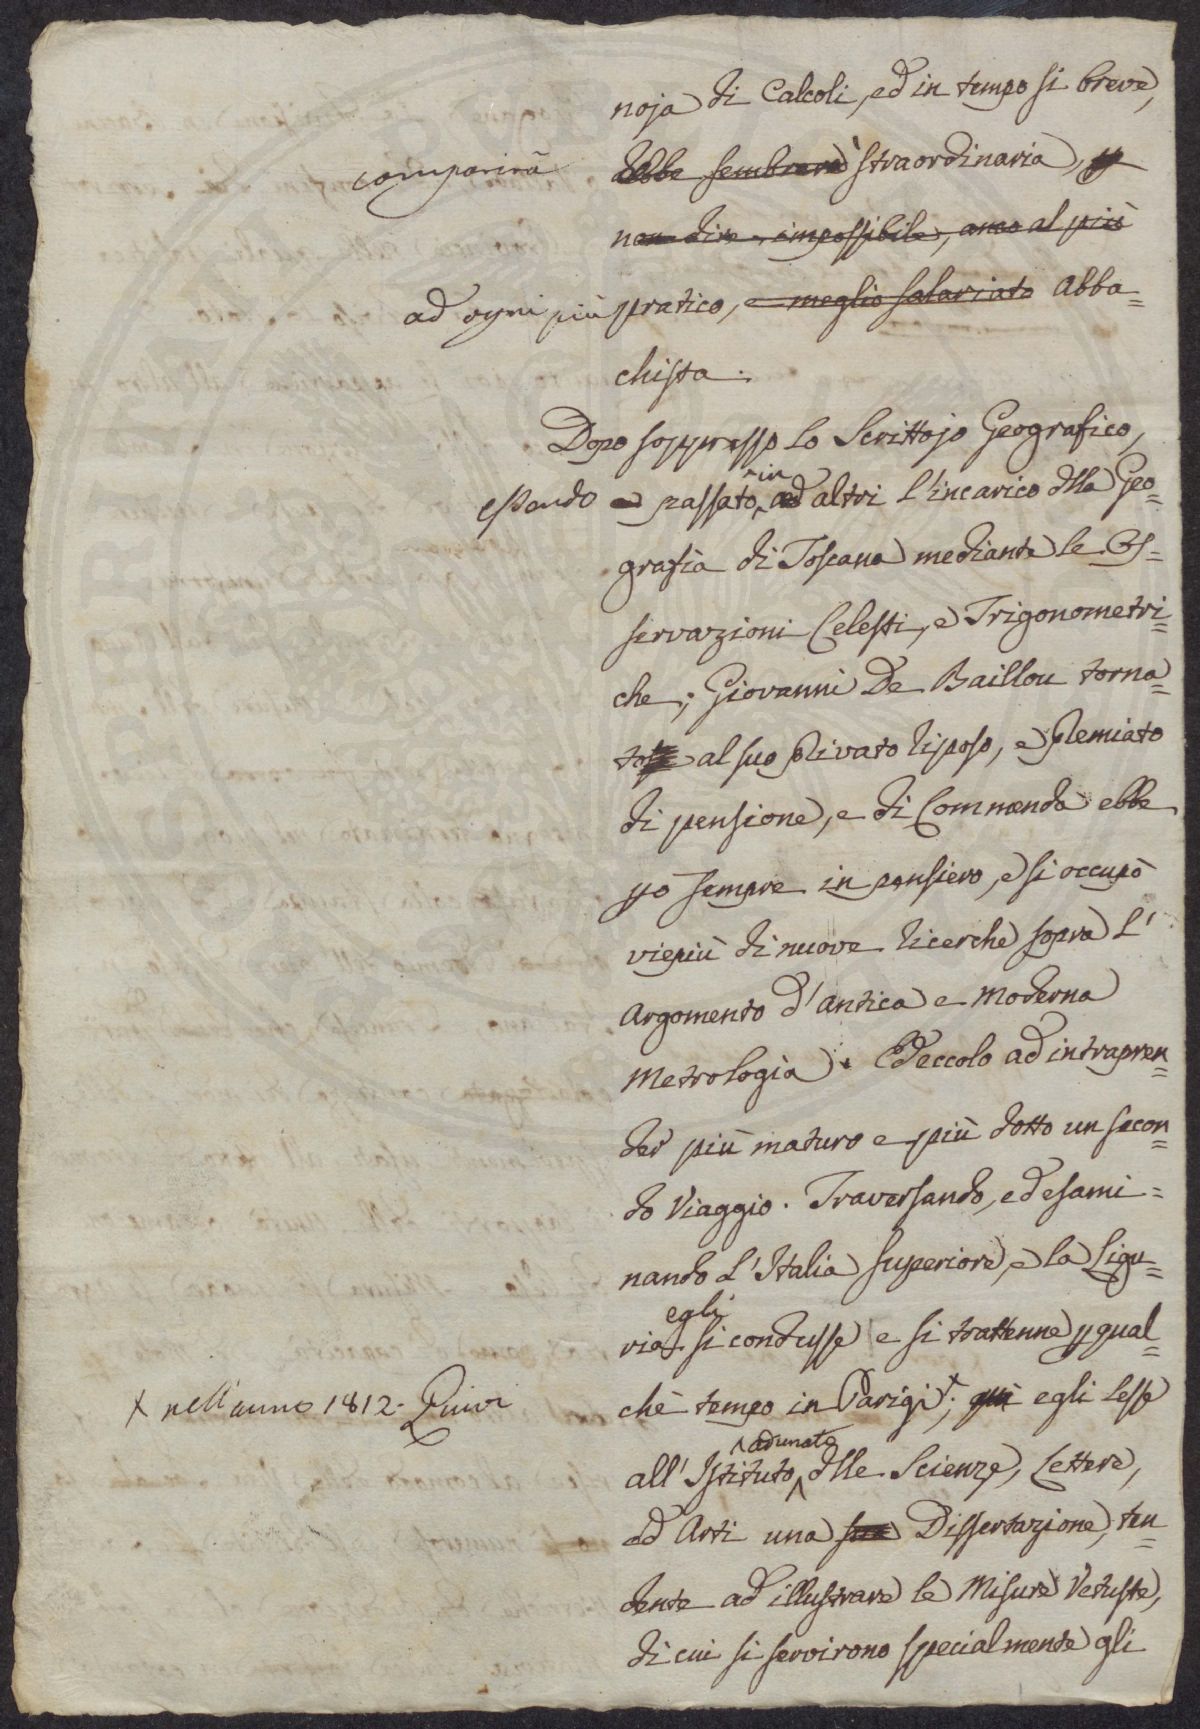 noja di Calcoli, ed in tempo si breve,
comparirà debbe sembrare straordinaria, p
non dire impossibile, anco al più
ad ogni più pratico, e meglio salariato Abba=
chista.
Dopo soppresso lo Scrittojo Geografico,
essendo e passato in ad altri l'incarico dlla Geo=
grafia di Toscana mediante le Os=
servazioni Celesti, e Trigonometri=
che; Giovanni De Baillou torna=
tose al suo privato riposo, e premiato
di pensione, e di Commenda ebbe
pò sempre in pensiero, e si occupò
viepiù di nuove ricerche sopra l'
Argomento d'antica e moderna
Metrologia. Edeccolo ad intrapren=
der più maturo e più dotto un secon=
do Viaggio. Traversando, ed esami=
nando l'Italia superiore, e la Ligu=
ria egli si condusse e si trattenne p qual=
+ nell'anno 1812. Quivi
che tempo in Parigi +; qui egli lesse
all'Istituto adunato dlle Scienze, Lettere,
ed Arti una sua Dissertazione, ten=
dente ad illustrare le Misure Vetuste,
di cui si servirono specialmente gli